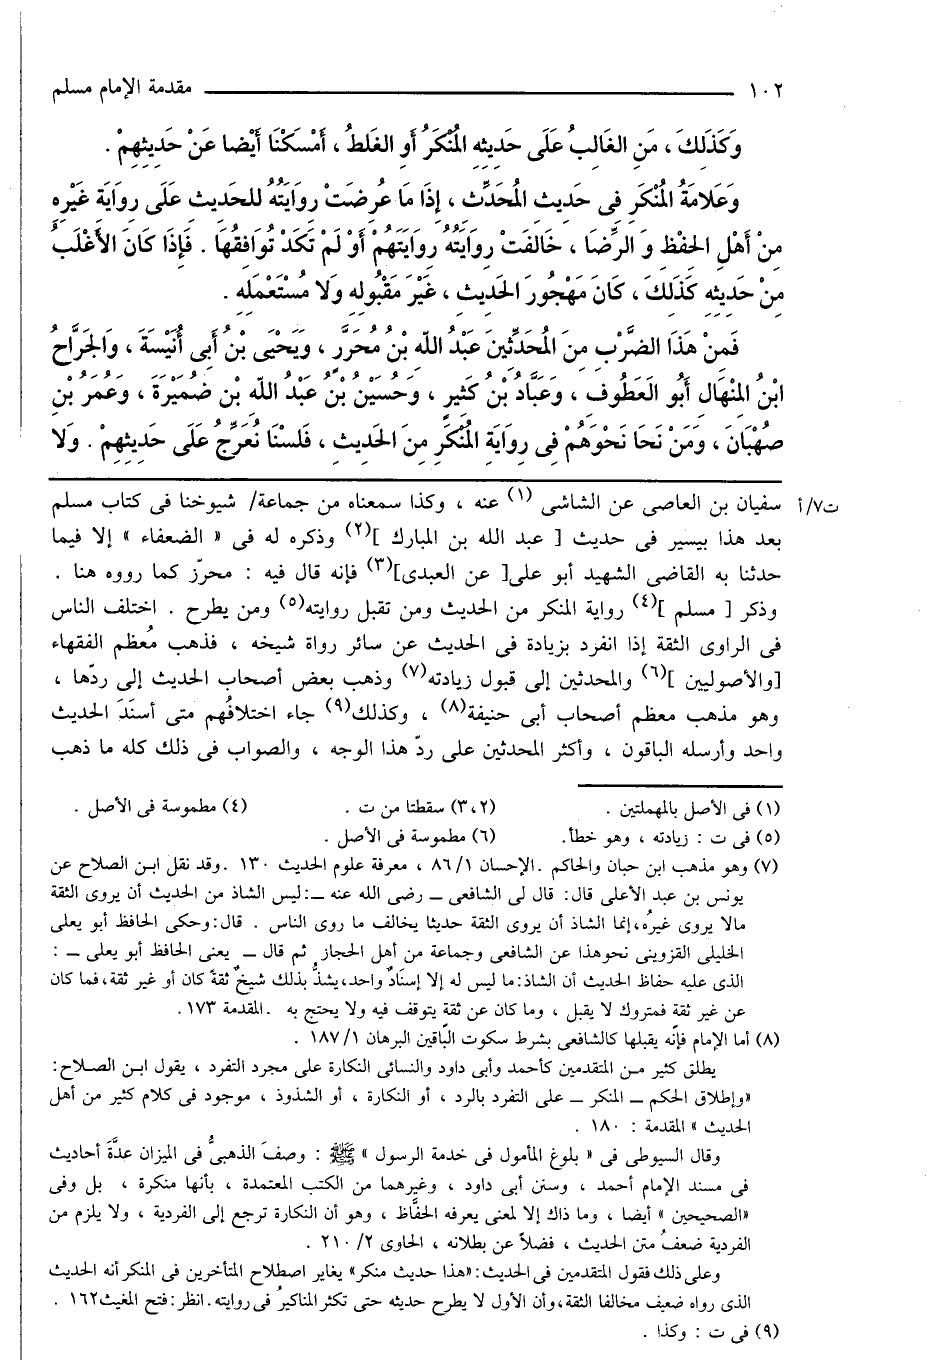 ١٠٢ ــــــ مقدمة الإمام مسلم
وَكَذَلِكَ ، مَنِ الغَالِبُ عَلَى حَدِيثِهِ المُنْكَرُ أَوِ الغَلَطُ ، أَمْسَكْنَا أَيْضًا عَنْ حَدِيثِهِمْ .
وَعَلامَةُ المُنْكَرِ فِى حَدِيثِ المُحَدِّثِ ، إِذَا مَا عُرِضَتْ رِوَايَتُهُ لِلحَدِيثِ عَلَى رِوَايَةِ غَيْرِهِ
مِنْ أَهْلِ الحِفْظِ وَ الرِّضَا ، خَالَفَتْ رِوَايَتُهُ رِوَايَتَهُمْ أَوْ لَمْ تَكَدْ تُوَافِقُهَا . فَإِذَا كَانَ الأَغْلَبُ
مِنْ حَدِيثِهِ كَذَلِكَ ، كَانَ مَهْجُورَ الحَدِيثِ ، غَيْرَ مَقْبُولِهِ وَلا مُسْتَعْمَلِهِ .
فَمِنْ هَذَا الضَّرْبِ مِنَ المُحَدِّثِينَ عَبْدُ اللهِ بْنُ مُحَرَّرٍ ، وَيَحْيَى بْنُ أَبِى أُنَيْسَةَ ، وَالجَرَّاحُ
ابْنُ المِنْهَالِ أَبُو العَطُوفِ ، وَعَبَّادُ بْنُ كَثِيرٍ ، وَحُسَيْنُ بْنُ عَبْدُ اللهِ بْنِ ضُمَيْرَةَ ، وَعُمَرُ بْنِ
صُهْبَانَ ، وَمَنْ نَحَا نَحْوَهُمْ فِى رِوَايَةِ المُنْكَرِ مِنَ الحَدِيثِ ، فَلسْنَا نُعَرِّجُ عَلَى حَدِيثِهِمْ . وَلا
ت٧/أ سفيان بن العاصى عن الشاشى (١) عنه ، وكذا سمعناه من جماعة/ شيوخنا فى كتاب مسلم
بعد هذا بيسير فى حديث [ عبد الله بن المبارك ](٢) وذكره له فى « الضعفاء » إلا فيما
حدثنا به القاضى الشهيد أبو على[ عن العبدى](٣) فإنه قال فيه : محرّز كما رووه هنا .
وذكر [ مسلم ](٤) رواية المنكر من الحديث ومن تقبل روايته(٥) ومن يطرح . اختلف الناس
فى الراوى الثقة إذا انفرد بزيادة فى الحديث عن سائر رواة شيخه ، فذهب مُعظم الفقهاء
[والأصوليين ](٦) والمحدثين إلى قبول زيادته(٧) وذهب بعض أصحاب الحديث إلى ردّها ،
وهو مذهب معظم أصحاب أبى حنيفة(٨) ، وكذلك(٩) جاء اختلافُهم متى أسنَدَ الحديث
واحد وأرسله الباقون ، وأكثر المحدثين على ردّ هذا الوجه ، والصواب فى ذلك كله ما ذهب
(١) فى الأصل بالمهملتين . (٢،٣) سقطتا من ت . (٤) مطموسة فى الأصل .
(٥) فى ت : زيادته ، وهو خطأ. (٦) مطموسة فى الأصل .
(٧) وهو مذهب ابن حبان والحاكم .الإحسان ٨٦/١ ، معرفة علوم الحديث ١٣٠ .وقد نقل ابن الصلاح عن
يونس بن عبد الأعلى قال: قال لى الشافعى ــ رضى الله عنه ــ:ليس الشاذ من الحديث أن يروى الثقة
مالا يروى غيرُه،إنما الشاذ أن يروى الثقة حديثا يخالف ما روى الناس . قال:وحكى الحافظ أبو يعلى
الخليلى القزوينى نحوهذا عن الشافعى وجماعة من أهل الحجاز ثم قال ــ يعنى الحافظ أبو يعلى ــ :
الذى عليه حفاظ الحديث أن الشاذ:ما ليس له إلا إسنادٌ واحد،يشذُّ بذلك شيخٌ ثقةً كان أو غير ثقة،فما كان
عن غير ثقة فمتروك لا يقبل ، وما كان عن ثقة يتوقف فيه ولا يحتج به .المقدمة ١٧٣.
(٨) أما الإمام فإنّه يقبلها كالشافعى بشرط سكوت البَاقين البرهان ١٨٧/١ .
يطلق كثير مـن المتقدمين كأحمد وأبى داود والنسائى النكارة على مجرد التفرد ، يقول ابـن الصلاح:
«وإطلاق الحكم ــ المنكر ــ على التفرد بالرد ، أو النكارة ، أو الشذوذ ، موجود فى كلام كثير من أهل
الحديث » المقدمة : ١٨٠ .
وقال السيوطى فى « بلوغ المأمول فى خدمة الرسول » ﷺ : وصفَ الذهبىُّ فى الميزان عدَّةَ أحاديث
فى مسند الإمام أحمد ، وسنن أبى داود ، وغيرهما من الكتب المعتمدة ، بأنها منكرة ، بل وفى
«الصحيحين » أيضا ، وما ذاك إلا لمعنى يعرفه الحفَّاظ ، وهو أن النكارة ترجع إلى الفردية ، ولا يلزم من
الفردية ضعفُ متن الحديث ، فضلاً عن بطلانه ، الحاوى ٢١٠/٢ .
وعلى ذلك فقول المتقدمين فى الحديث:«هذا حديث منكر» يغاير اصطلاح المتأخرين فى المنكر أنه الحديث
الذى رواه ضعيف مخالفا الثقة،وأن الأول لا يطرح حديثه حتى تكثر المناكيرُ فى روايته.انظر:فتح المغيث١٦٢ .
(٩) فى ت : وكذا .